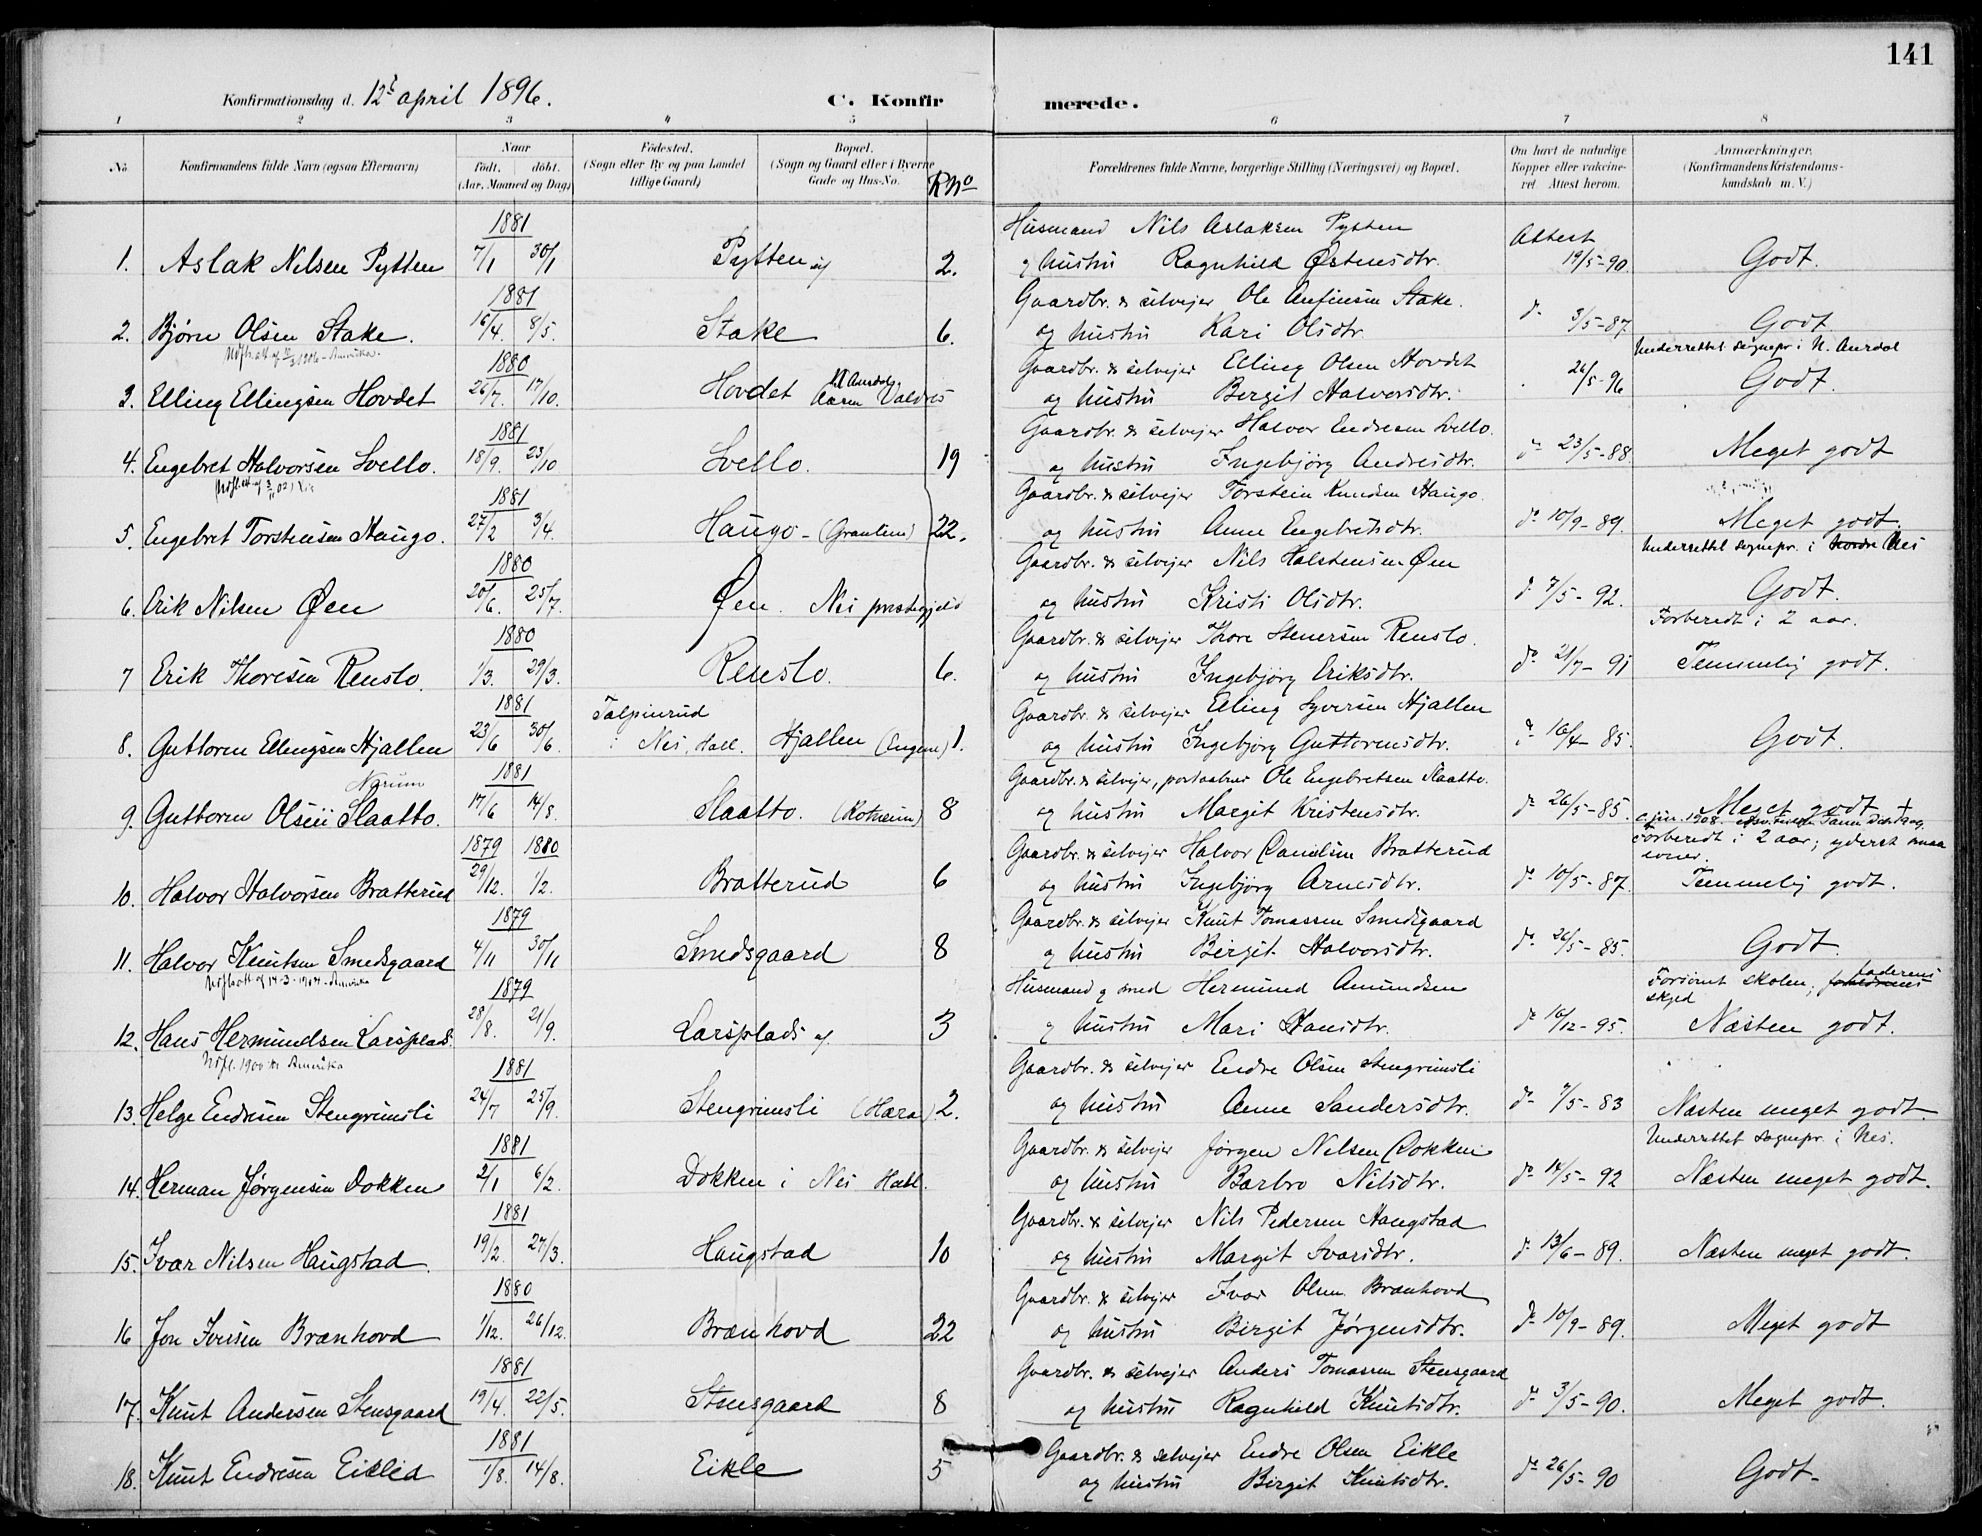 141
Konfirmationsdag d. 12te april 1896. C. Konfirmerede.
1 2 3 4 5 6 7 8
No Konfirmandens fulde Navn (ogsaa Efternavn) Naar født. døbt. (Aar, Maaned og Dag) Fødested. (Sogn eller By og paa Landet tillige Gaard) Bopæl. (Sogn og Gaard eller i Byerne Gade og Hus-No. R No Forældrenes fulde Navne, borgerlige Stilling (Næringsvei) og Bopæl. Om havt de naturlige Kopper eller vakcineret. Attest herom. Anmærkninger. (Konfirmandens Kristendomskundskab m. V.)
1881 Husmand Nils Aslaksen Pytten Attest
1. Aslak Nilsen Pytten 7/1 30/1 Pytten ej 2. og hustru Ragnhild Østensdtr. 19/5-90 Godt.
1881 Gaardbr. & selvejer Ole Anfinsen Stake.
2. Bjørn Olsen Stake. 16/4. 8/5. Stake 6. og hustru Kari Olsdtr. do 3/5-87 Godt
Underrettet sognepr. i N. Aurdal
1880 Gaardbr. & selvejer Elling Olsen Hovdet
3. Elling Ellingsen Hovdet 26/7. 17/10. Hovdet N. Aurdal Valdres og hustru Birgit Halvorsdtr. 26/5-96 Godt.
1881 Gaardbr. & selvejer Halvor Endresen Svello.
4. Engebret Halvorsen Svello. 18/9. 23/10 Svello. 19 og hustru Ingebjørg Andresdtr. do 23/5-88. Meget godt
1881 Gaardbr. & selvejer Torstein Knudsen Haugo.
5. Engebret Torstensen Haugo. 27/2 3/4. Haugo - (Granlien) 22. og hustru Anne Engebretsdtr. do 10/9-89. Meget godt.
Underrettet sognepr. i Nordre Nes
1880 Gaardbr. & selvejer Nils Halstensen Øen
6. Erik Nilsen Øen 20/6. 25/7. Øen. Nes prestegjeld og hustru Kristi Olsdtr. do 7/5-92. Godt.
Forberedt i 2 aar.
1880 Gaardbr. & selvejer Thore Stenersen Renslo.
7 Erik Thoresen Renslo. 1/3. 29/3. Renslo. 6. og hustru Ingebjørg Eriksdtr. do 21/7-91 Temmelig godt.
1881 Talpinrud Gaardbr. & selvejer Elling Syversen Hjallen
8. Guttorm Ellingsen Hjallen 23/6 30/6. i Nes, Hall. Hjallen 1. og hustru Ingebjørg Guttormsdtr. do 16/4-85. Godt.
Narum 1881 Gaardbr. & selvejer, postaabner Ole Engebretsen Slaatto.
9. Guttorm Olsen Slaatto. 17/6 14/8. Slaatto. (Rotneim) 8 og hustru Margit Kristensdtr. do 26/5-85. Meget godt +
1879 1880 Gaardbr. & selvejer Halvor Danielsen Bratterud Forberedt i 2 aar; yderst smaa evner.
10. Halvor Halvorsen Bratterud 29/12. 1/2. Bratterud 6 og hustru Ingebjørg Arnesdtr. do 10/5-87. Temmelig godt.
1879 Gaardbr. & selvejer Knut Tomassen Smedsgaard
11. Halvor Knutsen Smedsgaard 4/11 30/11 Smedsgaard 8 og hustru Birgit Halvorsdtr. do 26/5-85. Godt.
Udfl.att af 14-3-1904-Amerika
1879 Husmand og smed Hermund Amundsen Forsømt skolen; forældrenes faderens skyld
12. Hans Hermundsen Larsplads. 28/8. 21/9. Larsplads ej. 3 og hustru Mari Hansdtr. do 16/12-95. Næsten godt.
Udfl. 1900 til Amerika
1881 Gaardbr. & selvejer Endre Olsen Stengrimsli
13. Helge Endresen Stengrimsli 24/7 25/9. Stengrimsli (Hæra) 2. og hustru Anne Sandersdtr. do 7/5-83 Næsten meget godt.
Underrettet sognepr. i Nes.
1881 Gaardbr. & selvejer Jørgen Nilsen Dokken
14. Herman Jørgensen Dokken 2/1 6/2. Dokken i Nes Hall. og hustru Barbro Nilsdtr. do 14/5-92 Næsten meget godt.
1881 Gaardbr. & selvejer Nils Pedersen Haugstad
15. Ivar Nilsen Haugstad. 19/2. 27/3. Haugstad 10 og hustru Margit Ivarsdtr. do 13/6-89. Næsten meget godt.
1880 Gaardbr. & selvejer Ivar Olsen Brænhovd
16 Jon Iversen Brænhovd 1/12. 26/12. Brænhovd 22 og hustru Birgit Jørgensdtr. do 10/9-89. Meget godt
1881 Gaardbr. & selvejer Anders Tomassen Stensgaard
17. Knut Andersen Stensgaard 19/4. 22/5. Stensgaard 8 og hustru Ragnhild Knutsdtr. do 3/5-90. Meget godt.
1881 Gaardbr. & selvejer Endre Olsen Eikle
18. Knut Endresen Eiklid 1/8. 14/8. Eikle 5 og hustru Birgit Knutsdtr. do 26/5-90 Godt.